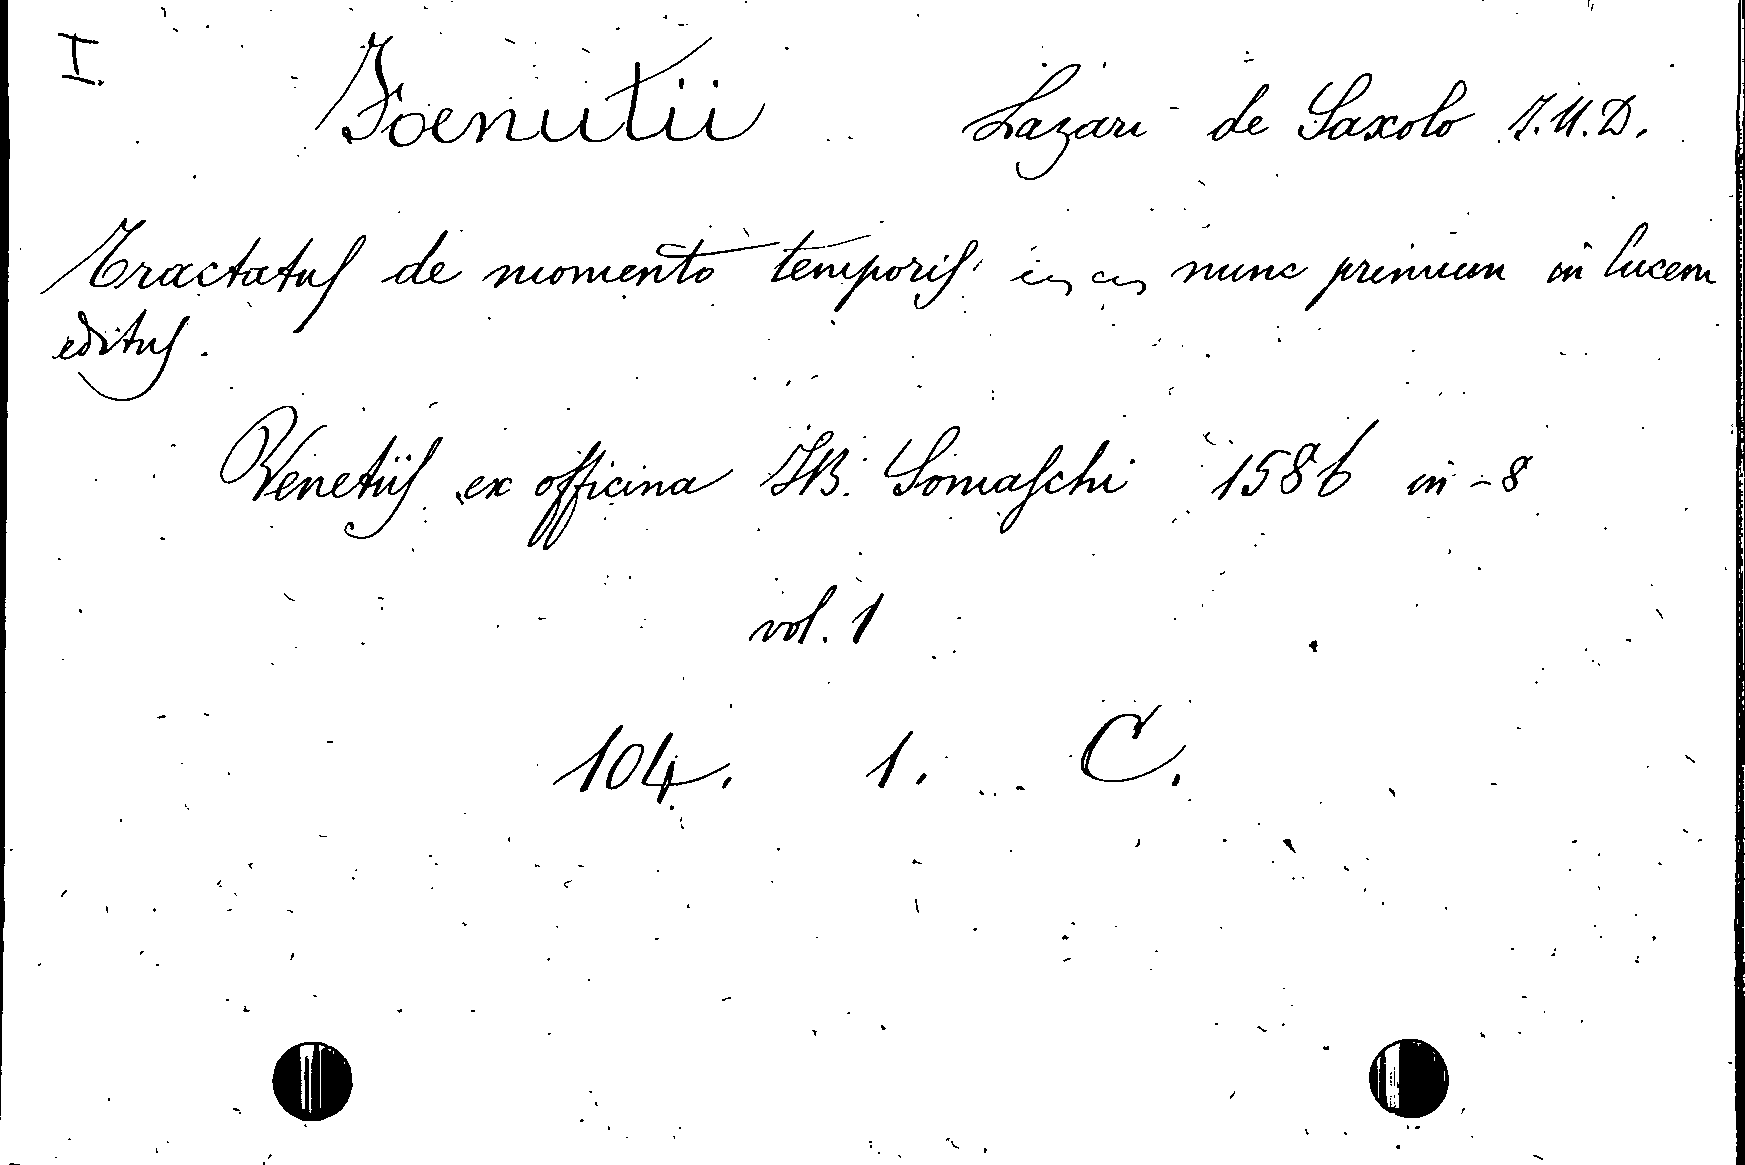 I.
Foenutii Lazari de Saxolo J.U.D.
Tractatus de momento temporis nunc primum in lucem
editus.
Venetiis ex officina JB. Somaschi 1586 in-8
vol. 1
104. 1. C.